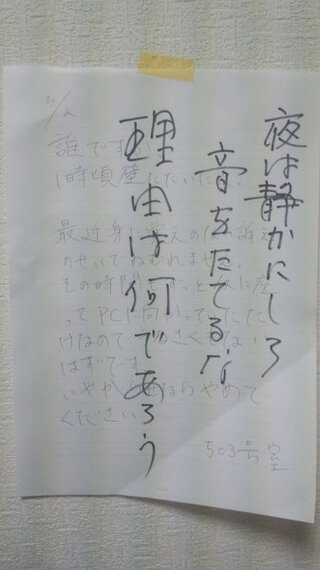 夜は静かにしろ
音をたてるな
理由は何であろう
5/2
誰です
1時頃壁たたいた
最近身に
のせいでねむれません。
その時間もずっと
ってPCに向かって
けなので
はずです
いやがらせならやめて
ください
503号室